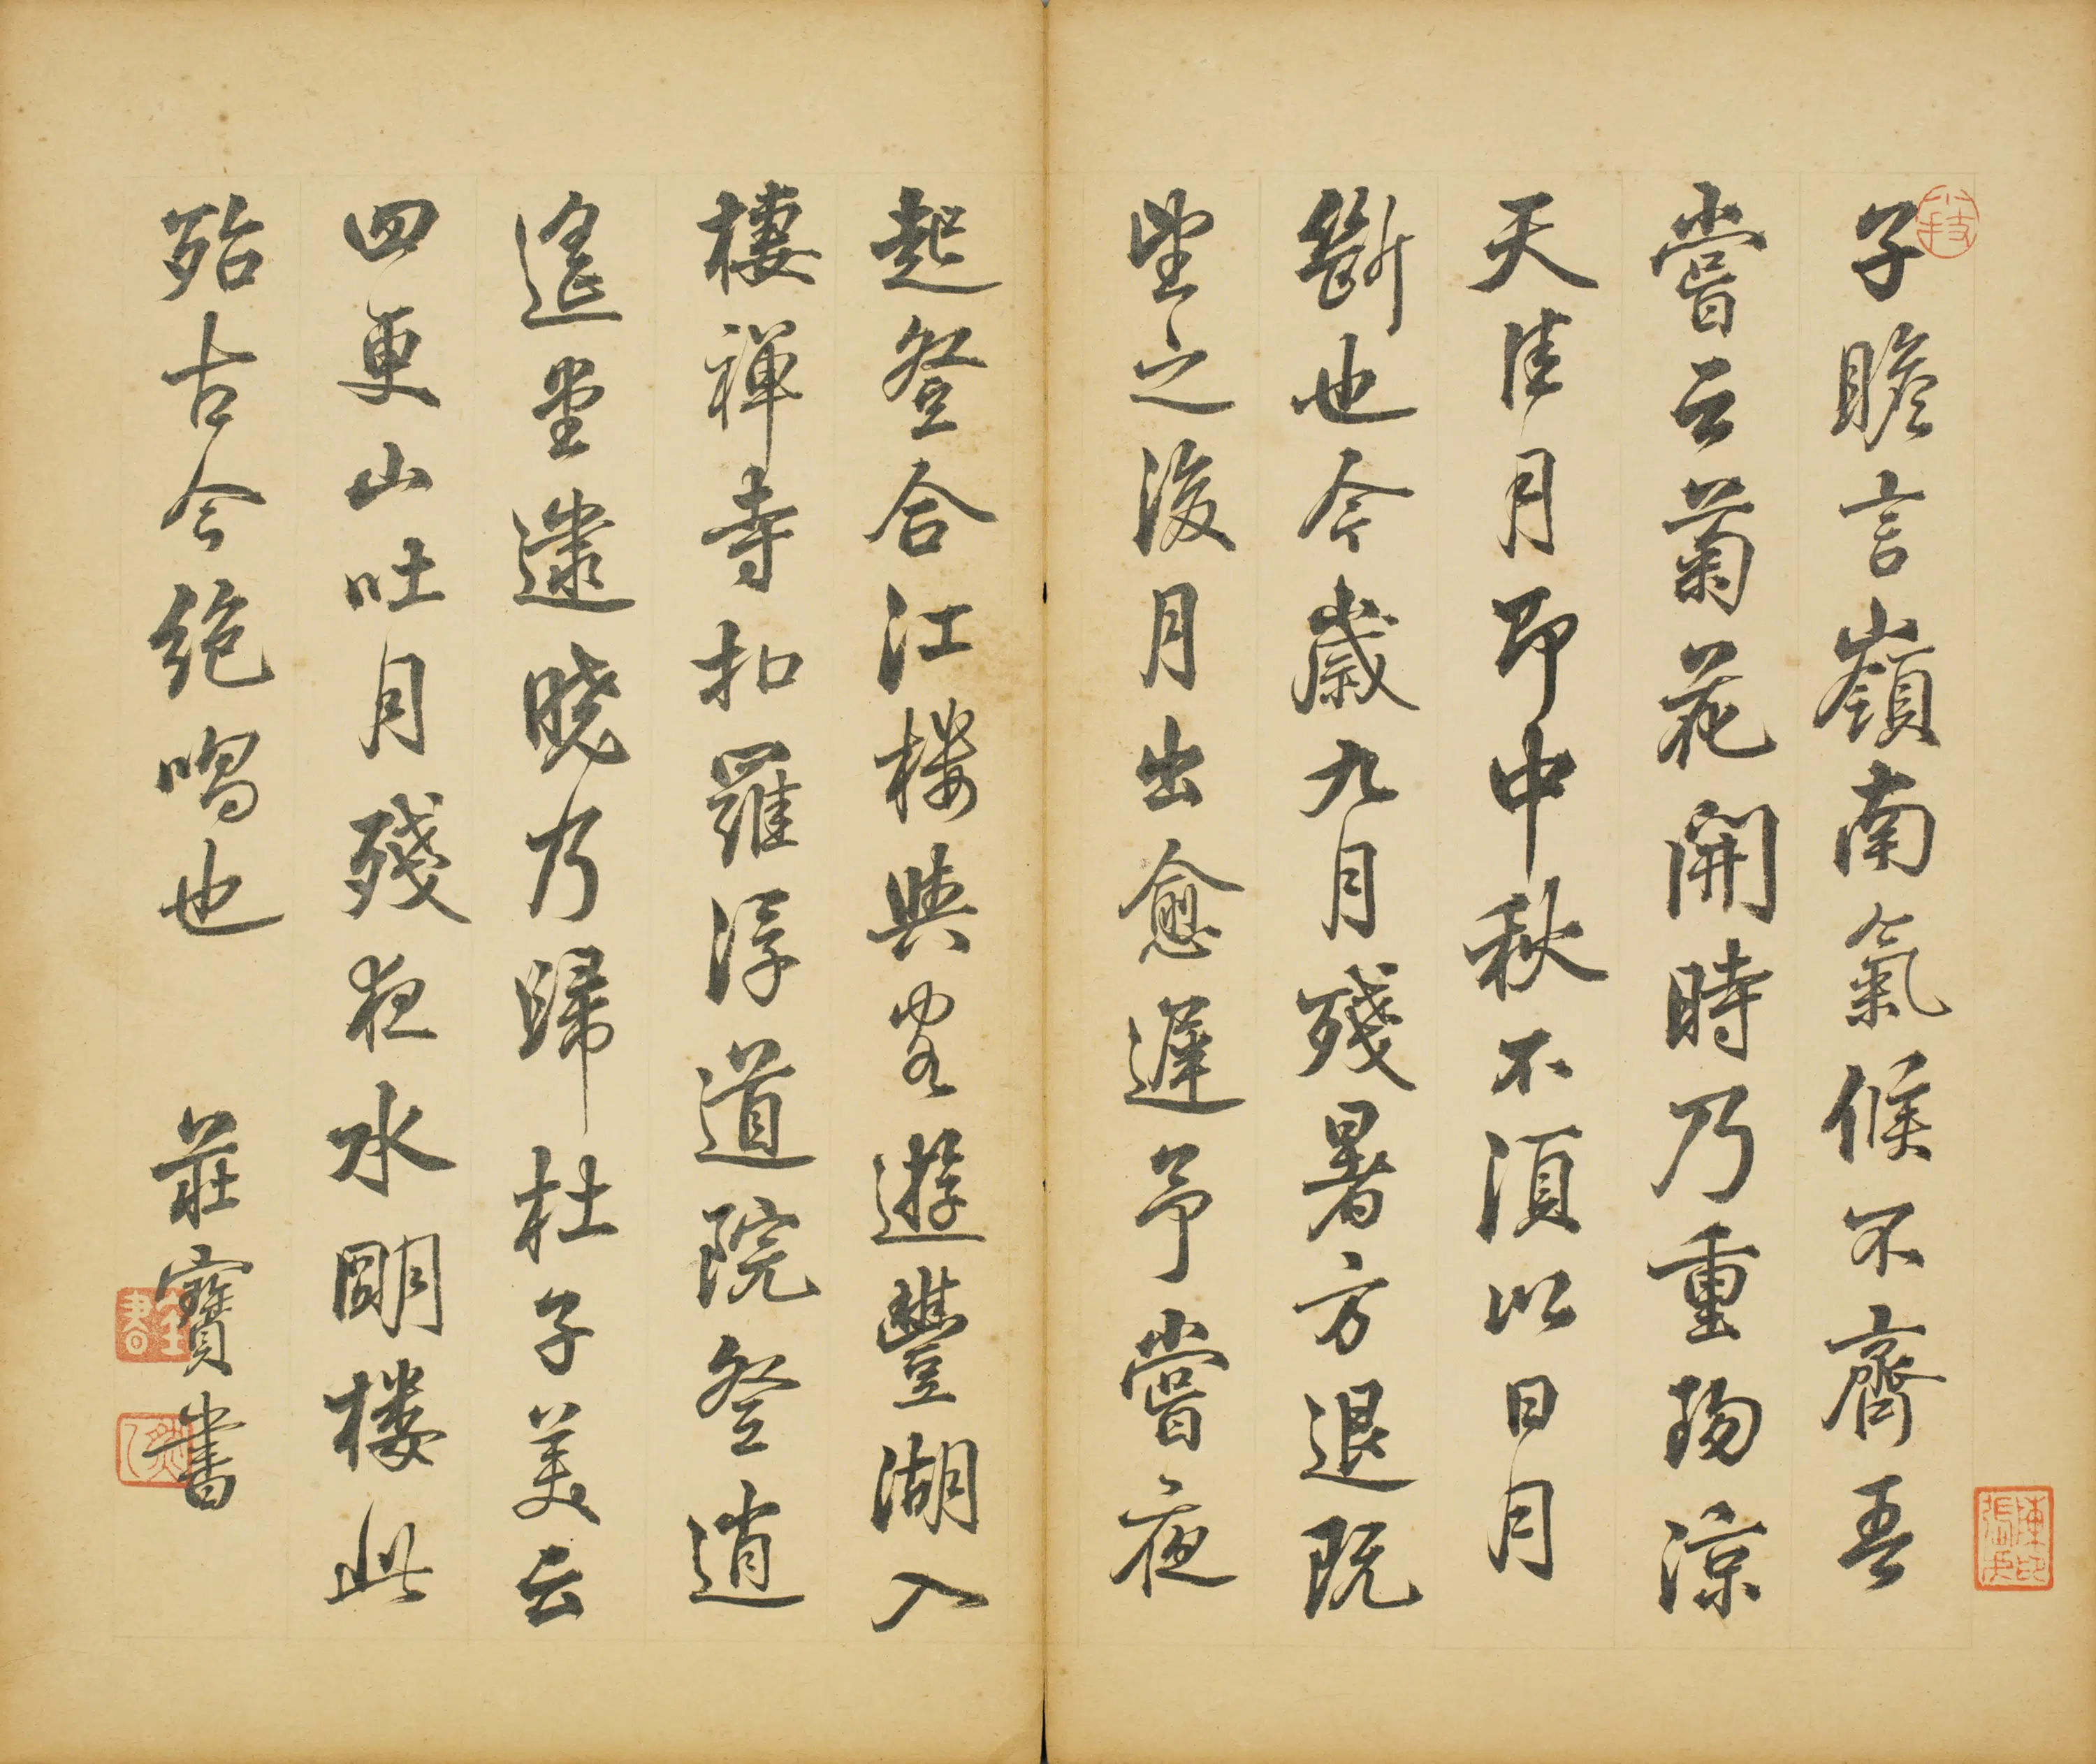 子瞻言嶺南氣候不齊吾
嘗云菊花開時乃重陽涼
天佳月即中秋不須以日月
斷也今歲九月殘暑方退既
望之後月出愈遲予嘗夜
起登合江樓與客遊豐湖入
棲禪寺扣羅浮道院登逍
遙堂逮曉乃歸杜子美云
四更山吐月殘夜水明樓此
殆古今絕唱也
莊寶書